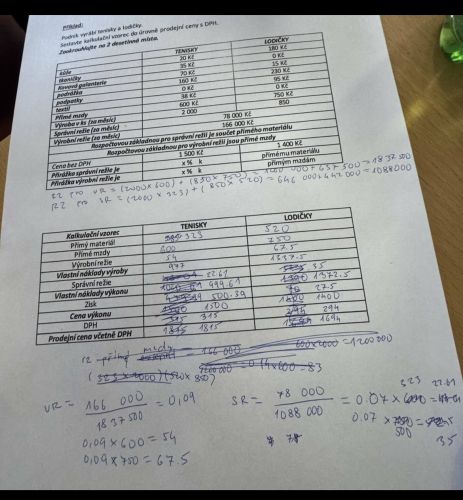 Příklad:
Podnik vyrábí tenisky a lodičky.
Sestavte kalkulační vzorec do úrovně prodejní ceny s DPH.
Zaokrouhlujte na 2 desetinné místa.
TENISKY LODIČKY
kůže 20 Kč 180 Kč
tkaničky 35 Kč 0 Kč
Kovová galanterie 70 Kč 15 Kč
podrážka 160 Kč 230 Kč
podpatky 0 Kč 95 Kč
textil 38 Kč 0 Kč
Přímé mzdy 600 Kč 750 Kč
Výroba v ks (za měsíc) 2 000 850
Správní režie (za měsíc) 78 000 Kč
Výrobní režie (za měsíc) 166 000 Kč
Rozpočtovou základnou pro správní režii je součet přímého materiálu
Rozpočtovou základnou pro výrobní režii jsou přímé mzdy
Cena bez DPH 1 500 Kč 1 400 Kč
Přirážka správní režie je x % k přímému materiálu
Přirážka výrobní režie je x % k přímým mzdám
RZ pro VR = (2000 x 600) + (850 x 750) = 1200 000 + 637 500 = 1837 500
RZ pro SR = (2000 x 323) + (850 x 520) = 646 000 + 442 000 = 1088000
Kalkulační vzorec TENISKY LODIČKY
Přímý materiál 323 520
Přímé mzdy 600 750
Výrobní režie 54 67.5
Vlastní náklady výroby 977 1337.5
Správní režie 22.61 35
Vlastní náklady výkonu 999.61 1372.5
Zisk 500.39 27.5
Cena výkonu 1500 1400
DPH 315 294
Prodejní cena včetně DPH 1815 1694
mzdy = 166 000 600x2000 = 1200000
(323 x 2000) (520 x 850) 0.14x600 = 83
VR = 166 000 / 1837 500 = 0,09
SR = 78 000 / 1088 000 = 0.07 x 323 22.61
0,09 x 600 = 54
0.07 x 500 35
0,09 x 750 = 67.5